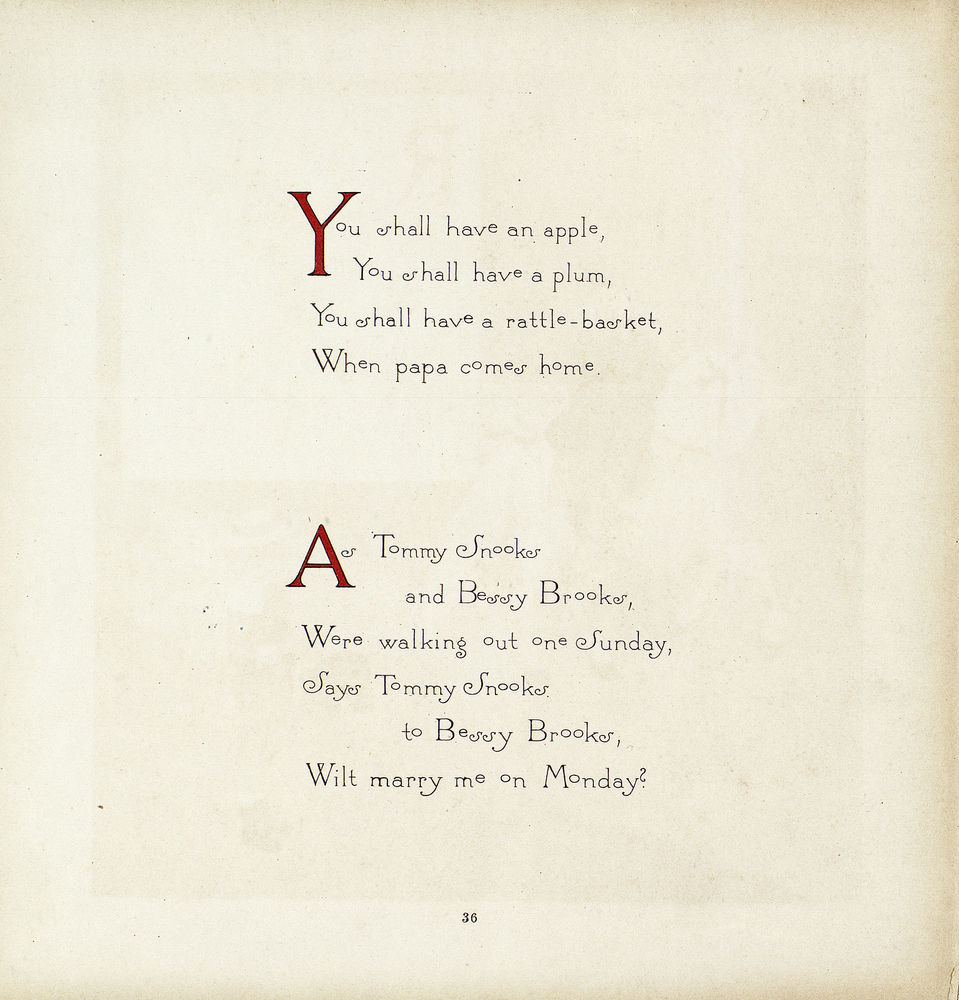 You shall have an apple,
You shall have a plum,
You shall have a rattle-basket,
When papa comes home.
As Tommy Snooks
and Bessy Brooks,
Were walking out one Sunday,
Says Tommy Snooks
to Bessy Brooks,
Wilt marry me on Monday?
36